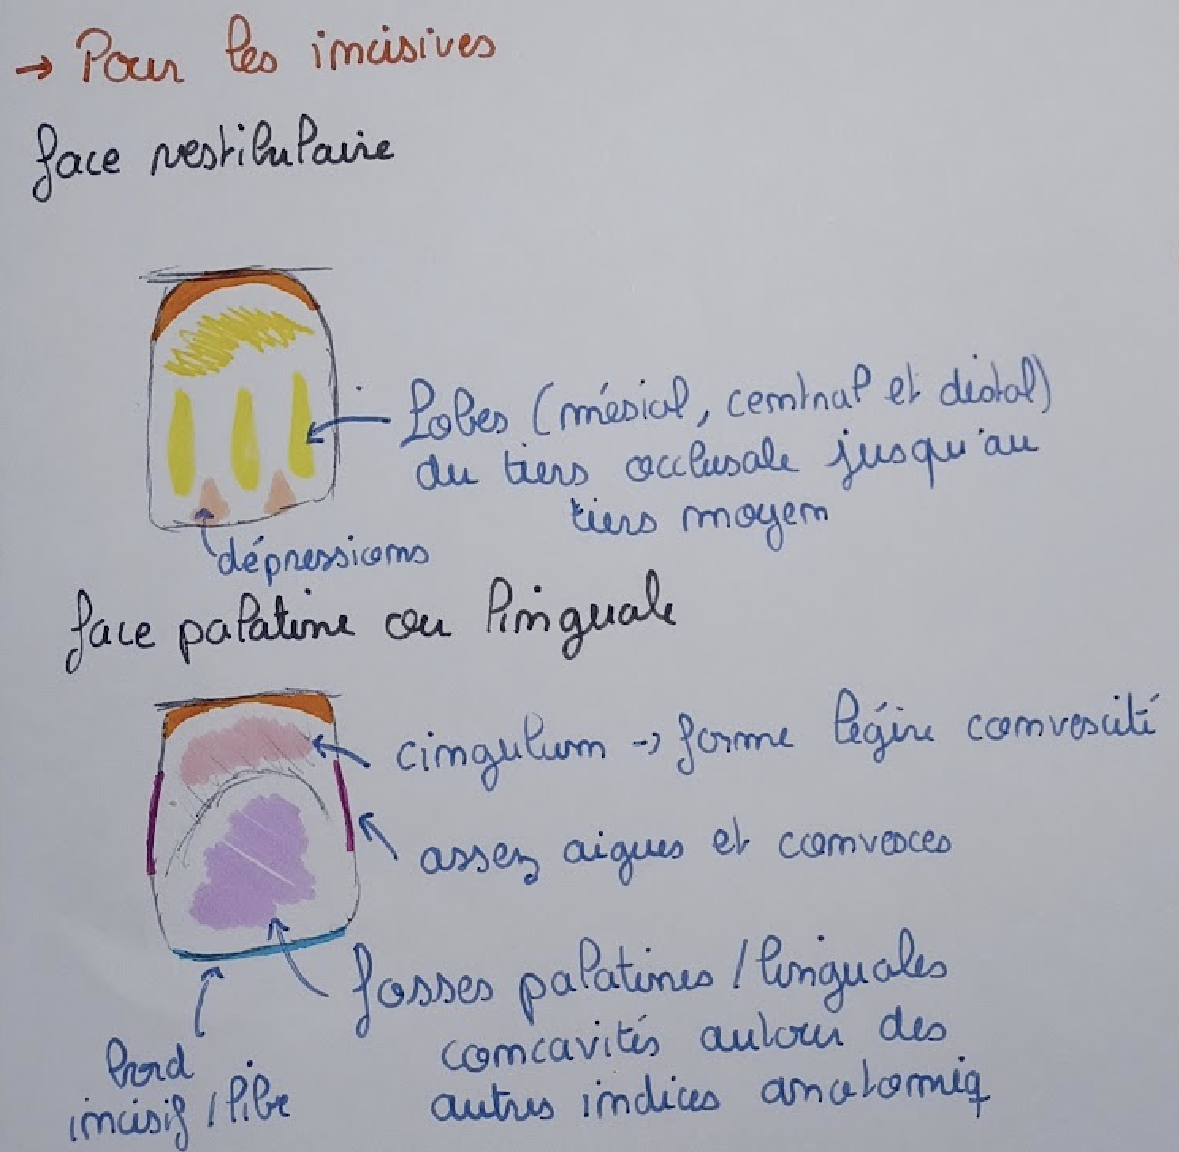 → Pour les incisives
face vestibulaire
Lobes (mésial, central et distal)
du tiers occlusale jusqu'au
tiers moyen
dépressions
face palatine ou linguale
cingulum -> forme légère convexcité
assez aigues et convexces
fosses palatines / linguales
concavités autour des
autres indices anatomiq
bord
incisif / libe